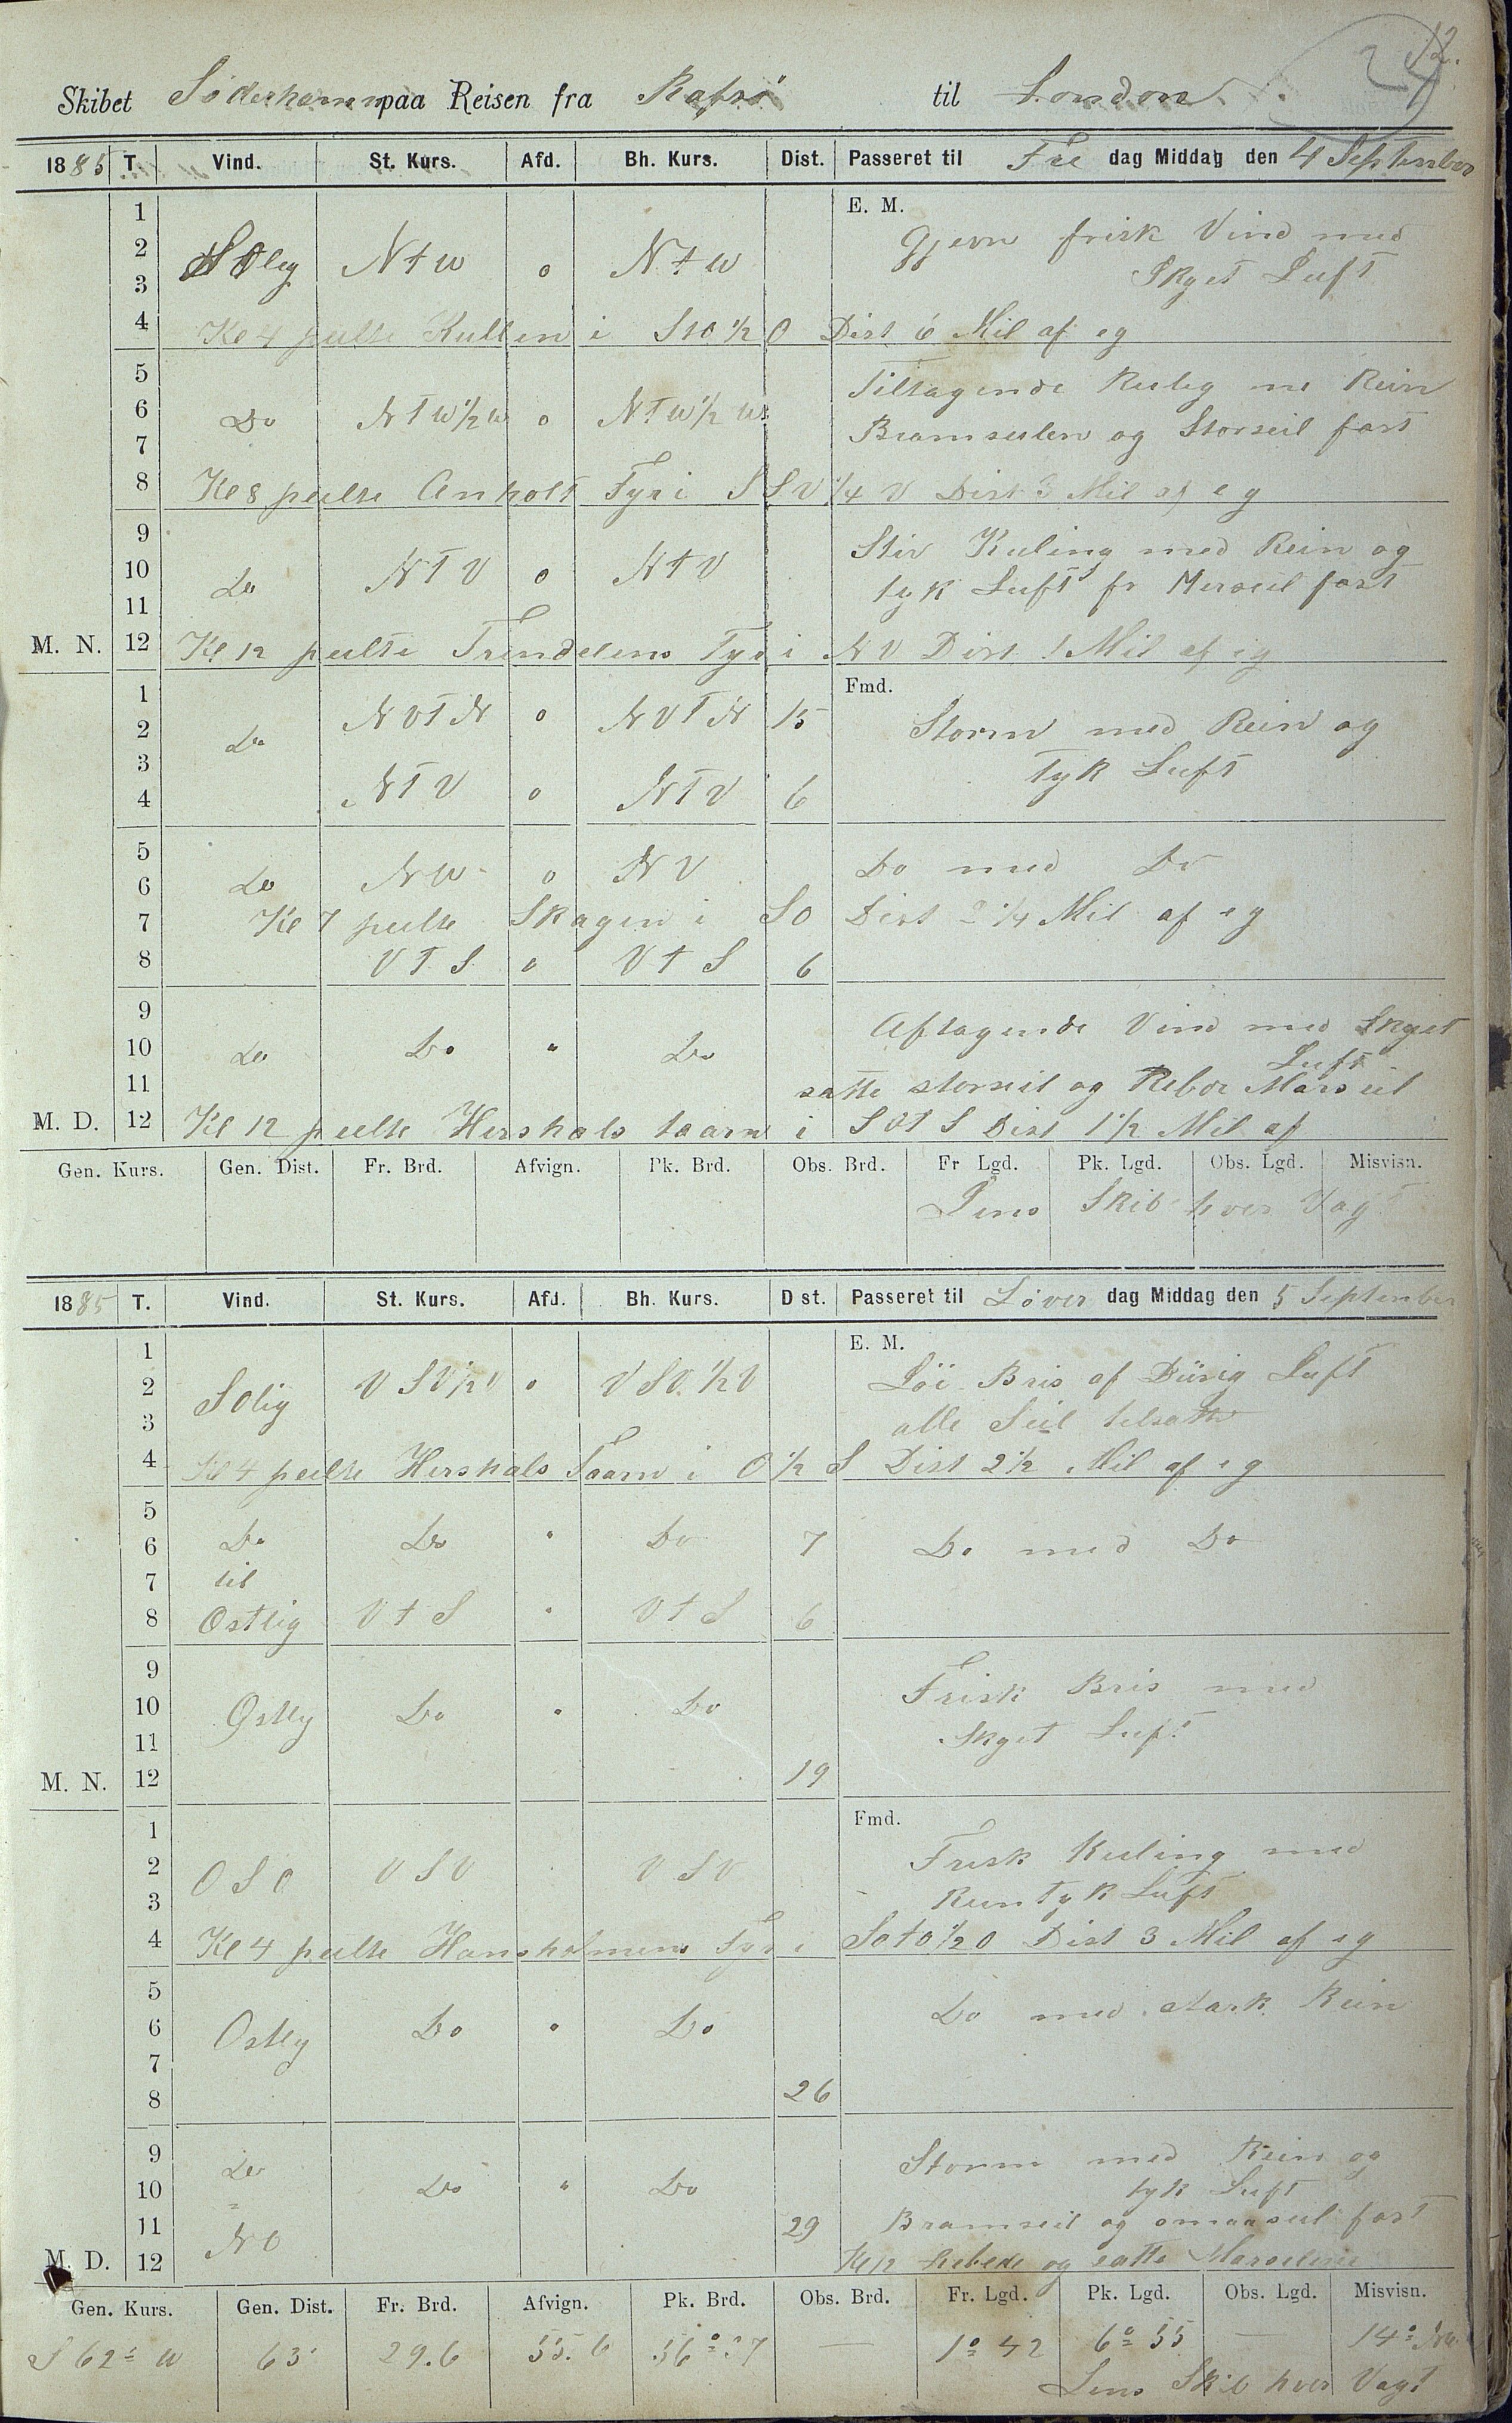 12.
24
Skibet Söderhamn paa Reisen fra Rafsö til London.
1885 T. Vind. St. Kurs. Afd. Bh. Kurs. Dist. Passeret til Fre dag Middag den 4 September
E. M.
1
2 SOlig NtW 0 NtW Gjevn frisk Vind med
3 Skyet Luft
4 Kl 4 peilte Kullen i StO 1/2 O Dist 6 Mil af eg
5 Tiltagende Kulig me Rein
6 Do NtW 1/2 W 0 NtW 1/2 W
7 Bramseilen og Storseil fast
8 Kl 8 peilte Anholt Fyr i SSV 1/4 V Dist 3 Mil af eg
9 Stiv Kuling med Rein og
10 Do NTV 0 NtV
11 tyk Luft fr Merseil fast
M. N. 12 Kl 12 peilte Trindelens Fyr i NV Dist 1 Mil af eg
Fmd.
1 NVTN 0 NVTN 15
2 Do Storm med Rein og
3 Tyk Luft
4 NTV 0 NTV 6
5
6 Do NW 0 NV Do med Do
7 Kl 7 peilte Skagen i SO Dist 2 1/4 Mil af eg
8 VTS 0 VtS 6
9 Aftagende Vind med Skyet
10 Do Do " Do Luft
11 satte storseil og Mars eil
M. D. 12 Kl 12 peilte Hirshals taarn i SOtS Dist 1 1/2 Mil af
Gen. Kurs. Gen. Dist. Fr. Brd. Afvign. Pk. Brd. Obs. Brd. Fr Lgd. Pk. Lgd. Obs. Lgd. Misvisn.
Lens Skib hver Vagt
1885 T. Vind. St. Kurs. Afd. Bh. Kurs. Dst. Passeret til Löver dag Middag den 5 September
E. M.
1
2 SOlig VSV 1/2 V 0 VSV. 1/2 V Löi Bris af Diisig Luft
3 alle Seil tilsatte
4 Kl 4 peilte Hirshals Taarn i O 1/2 S Dist 2 1/2 Mil af eg
5
6 Do Do " Do 7 Do med Do
7 til
8 Ostlig VtS " VtS 6
9
10 Ostlig Do " Do Frisk Bris med
11 Skyet Luft
M. N. 12 19
Fmd.
1
2 OSO VSV VSV Frisk Kuling med
3 Rein Tyk Luft
4 Kl 4 peilte Hansholmens Fyr i SOtO 1/2 O Dist 3 Mil af eg
5
6 Ostlig Do " Do Do med stark Rein
7
8 26
9 Do Storm med Rein og
10 Do " Do tyk Luft
11 NO 29 Bramseil og smaaseil fast
M. D. 12 Kl 12 og satte
Gen. Kurs. Gen. Dist. Fr. Brd. Afvign. Pk. Brd. Obs. Brd. Fr. Lgd. Pk. Lgd. Obs. Lgd. Misvisn.
S 62° W 63' 29.6 55.6 56° 37 — 1° 42 6° 55 — 14° NW
Lens Skib hver Vagt